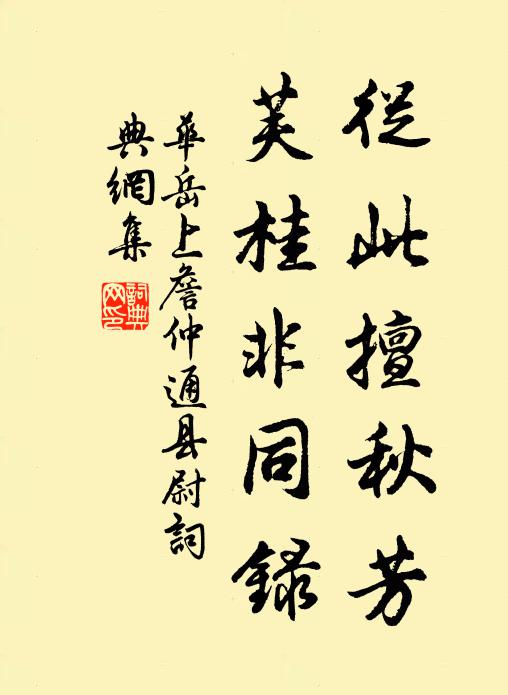 從此擅秋芳
芙桂非同録
華岳上詹仲通县尉詞
典網集
詞典
网印